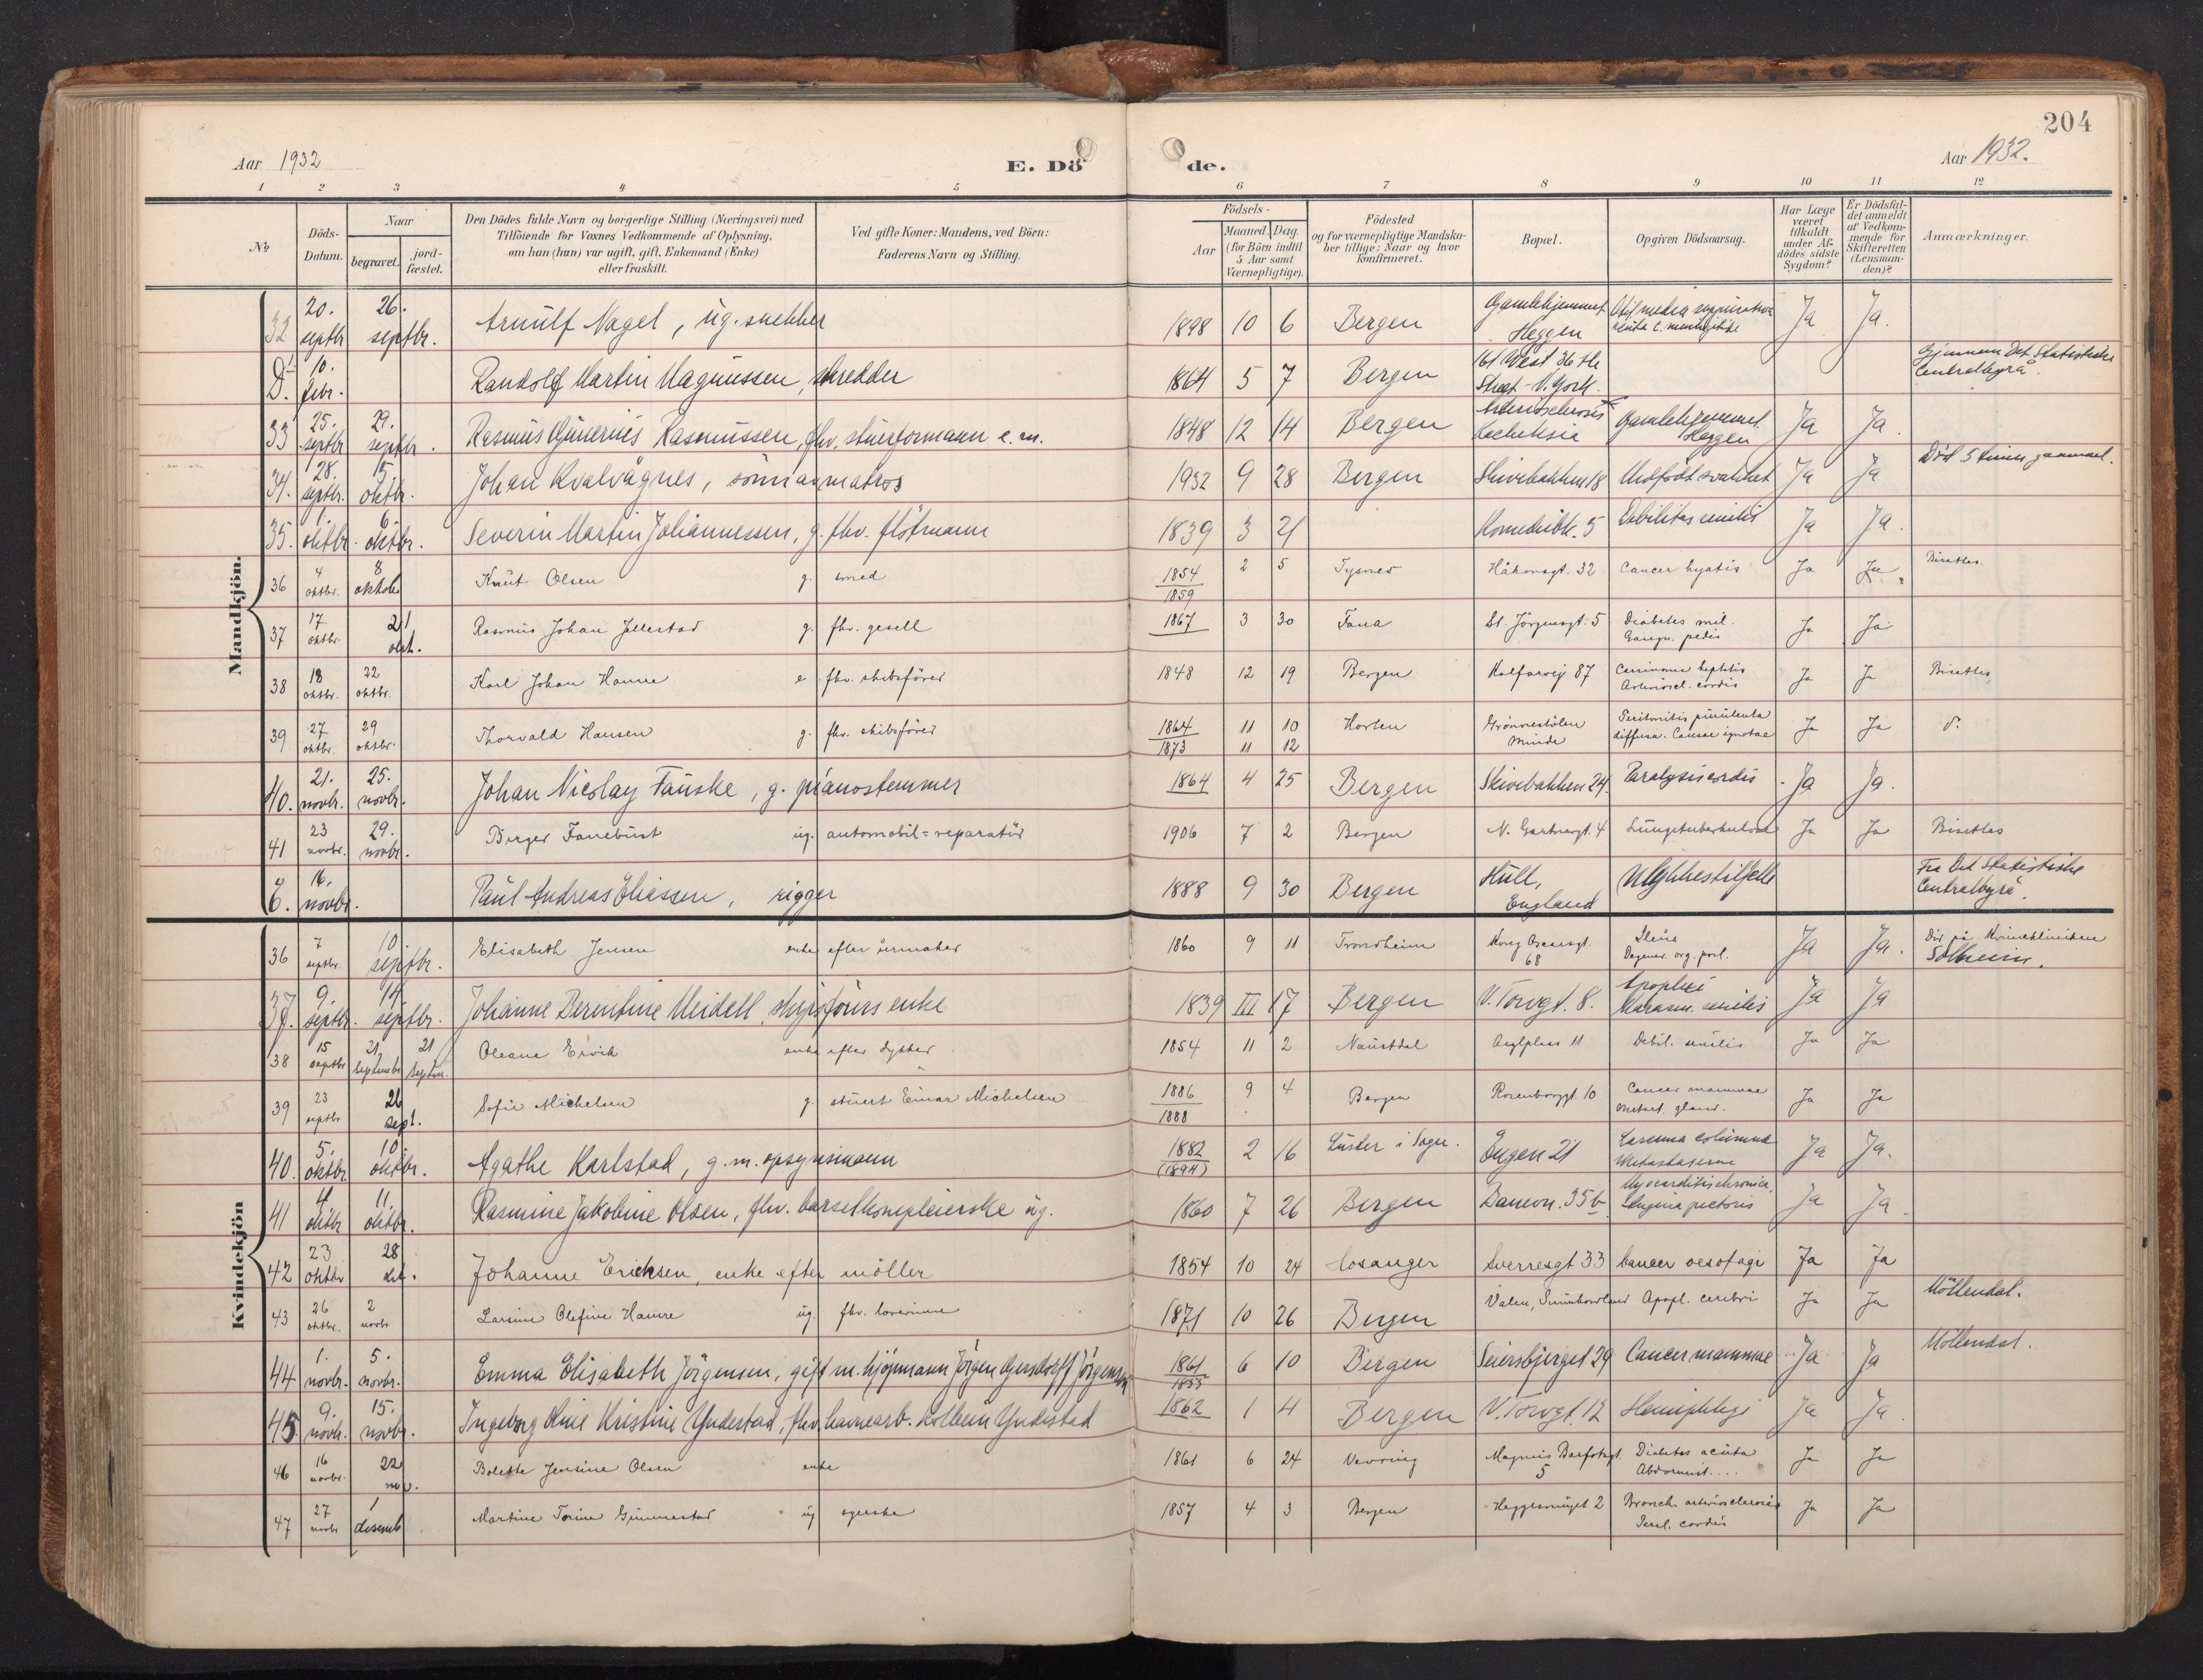 204
Aar 1932
E. Dö
de.
Aar 1932.
1 2 3 4 5 6 7 8 9 10 11 12
No
Döds-Datum.
Naar
begravet.
jord-fæstet.
Den Dödes fulde Navn og borgerlige Stilling (Næringsvei) med
Tilföiende for Voxnes Vedkommende af Oplysning,
om han (hun) var ugift, gift, Enkemand (Enke)
eller fraskilt.
Ved gifte Koner: Mandens, ved Börn:
Faderens Navn og Stilling.
Födsels-
Aar
Maaned. Dag.
(for Börn indtil
5 Aar samt
Værnepligtige).
Födested
og for værnepligtige Mandska-
ber tillige: Naar og hvor
konfirmeret.
Bopæl.
Opgiven Dödsaarsag.
Har Læge
været
tilkaldt
under Af-
dödes sidste
Sygdom?
Er Dödsfal-
det anmeldt
af Vedkom-
mende for
Skifteretten
(Lensman-
den)?
Anmærkninger.
Mandkjön.
32 20. septbr 26. septbr. Arnulf Nagel, ug. snekker 1898 10 6 Bergen Gamlehjemmet Heggen Otit media suppurativa Ja Ja.
D. 10. febr. Randolf Martin Magnussen, skredder 1864 5 7 Bergen 161 West 36 the Street - N. York. Gjennem Det Statistiske Centralbyrå.
33 25. septbr 29. septbr. Rasmus Gjinerius Rasmussen, fhv. stuerformann e.m. 1848 12 14 Bergen Arteriosclerosis Kacheksia Gamlehjemmet Heggen Ja Ja.
34. 28. septbr. 5 oktbr. Johan Kvalvågnes, sönn av matros 1932 9 28 Bergen Skivebakken 18 Medfödt svakhet Ja Ja Död 5 timer gammel.
35. 1. oktbr. 6 oktbr. Severin Martin Johannessen, g. fhv. flötmann 1839 3 21 Komediebk. 5 Debilitas senilis Ja Ja.
36 4 oktbr. 8 oktob Knut Olsen g. smed 1854 1859 2 5 Tysnes Håkonsgt. 32 Cancer hepatis Ja Ja Bisettes.
37 17 oktbr. 21 okt. Rasmus Johan Jellestad g. fhv. gesell 1867 3 30 Fana St. Jörgensgt. 5 Diabetes mel. Gangr. pedis Ja Ja
38 18 oktbr. 22 oktbr. Karl Johan Hamre e. fhv. skibsförer 1848 12 19 Bergen Kalfarvej 87 Carcinoma hepatis Arterioscl. cordis Ja Ja Bisettes
39 27 oktbr. 29 oktbr. Thorvald Hansen g. fhv. skibsförer 1864 1873 11 10 11 12 Horten Grönnestölen Minde Peritonitis purulenta diffusa. Causae ignotae Ja Ja
40. 21. novbr. 25. novbr. Johan Nicolay Fauske, g. pianostemmer 1864 4 25 Bergen Skivebakken 24 Paralysis cordis Ja Ja.
41 23 novbr. 29. novbr. Birger Fanebust ug. automobil=reparatör 1906 7 2 Bergen N. Gartnergt. 4 Lungetuberkulose Ja Ja Bisettes
E. 16. novbr. Paul Andreas Eliassen, rigger 1888 9 30 Bergen Hull, England Ulykkestilfelle Fra Det Statistiske Centralbyrå.
Kvindekjön
36 7 septbr. 10 septbr. Elisabeth Jensen enke efter urmaker 1860 9 11 Trondheim Kong Oscarsgt. 68 Ileus Degener. org. Ja Ja. Död på Kvineklinikken Solheim.
37. 9. septbr. 14. septbr. Johanne Berentine Meidell, skipsförers enke 1839 III 17 Bergen V. Torvgt. 8. Apoplexi Marasm. senilis Ja Ja
38 15 septbr 21 septembr 21 septbr. Oleane Ervik enke efter dykker 1854 11 2 Naustdal Asylplass 11 Debil. senilis Ja Ja
39 23 septbr 26 sept. Sofie Michelsen g. stuert Einar Michelsen 1886 1888 9 4 Bergen Rosenborggt. 10 Cancer mammae metast. gland. Ja Ja
40. 5. oktbr 10. oktbr. Agathe Karlstad, g. m. opsynsmann 1882 (1894) 2 16 Luster i Sogn. Engen 21 columna Metastaserne Ja Ja.
41 4. oktbr 11. oktbr. Rasmine Jakobine Olsen, fhv. barselkonepleierske ug. 1860 7 26 Bergen Damsv. 35 b Myocarditis chronica, Angina pectoris Ja Ja.
42 23 oktbr 28 okt. Johanne Ericksen, enke efter möller 1854 10 24 Hosanger Sverresgt 33 Cancer oesofagi Ja Ja
43 26 oktbr. 2 novbr Larsine Olefine Hamre ug. fhv. lærerinne 1871 10 26 Bergen Valen, Sunnhordland Apopl. cerebri Ja Ja Möllendal.
44 1. novbr. 5. novbr. Emma Elisabeth Jörgensen, gift m. kjöpmann Jörgen Gersdorff Jörgensen 1861 1855 6 10 Bergen Seiersbjerget 29 Cancer mammae Ja Ja Möllendal.
45 9. novbr. 15. novbr. Ingeborg Oline Kristine Yndestad, fhv. havnearb. Kolbein Yndestad 1862 1 4 Bergen V. Torvgt. 12 Hemiplegi Ja Ja
46 16 novbr. 22 nov. Bolette Jensine Olsen enke 1861 6 24 Vevring Magnus Barfotsgt. 5 Diabetes acuta Ja Ja
47 27 novbr 1 desemb Martine Torine Gimmestad ug syerske 1857 4 3 Bergen Heggesmuget 2 Bronch. arteriosclerosis Paral. cordis Ja Ja